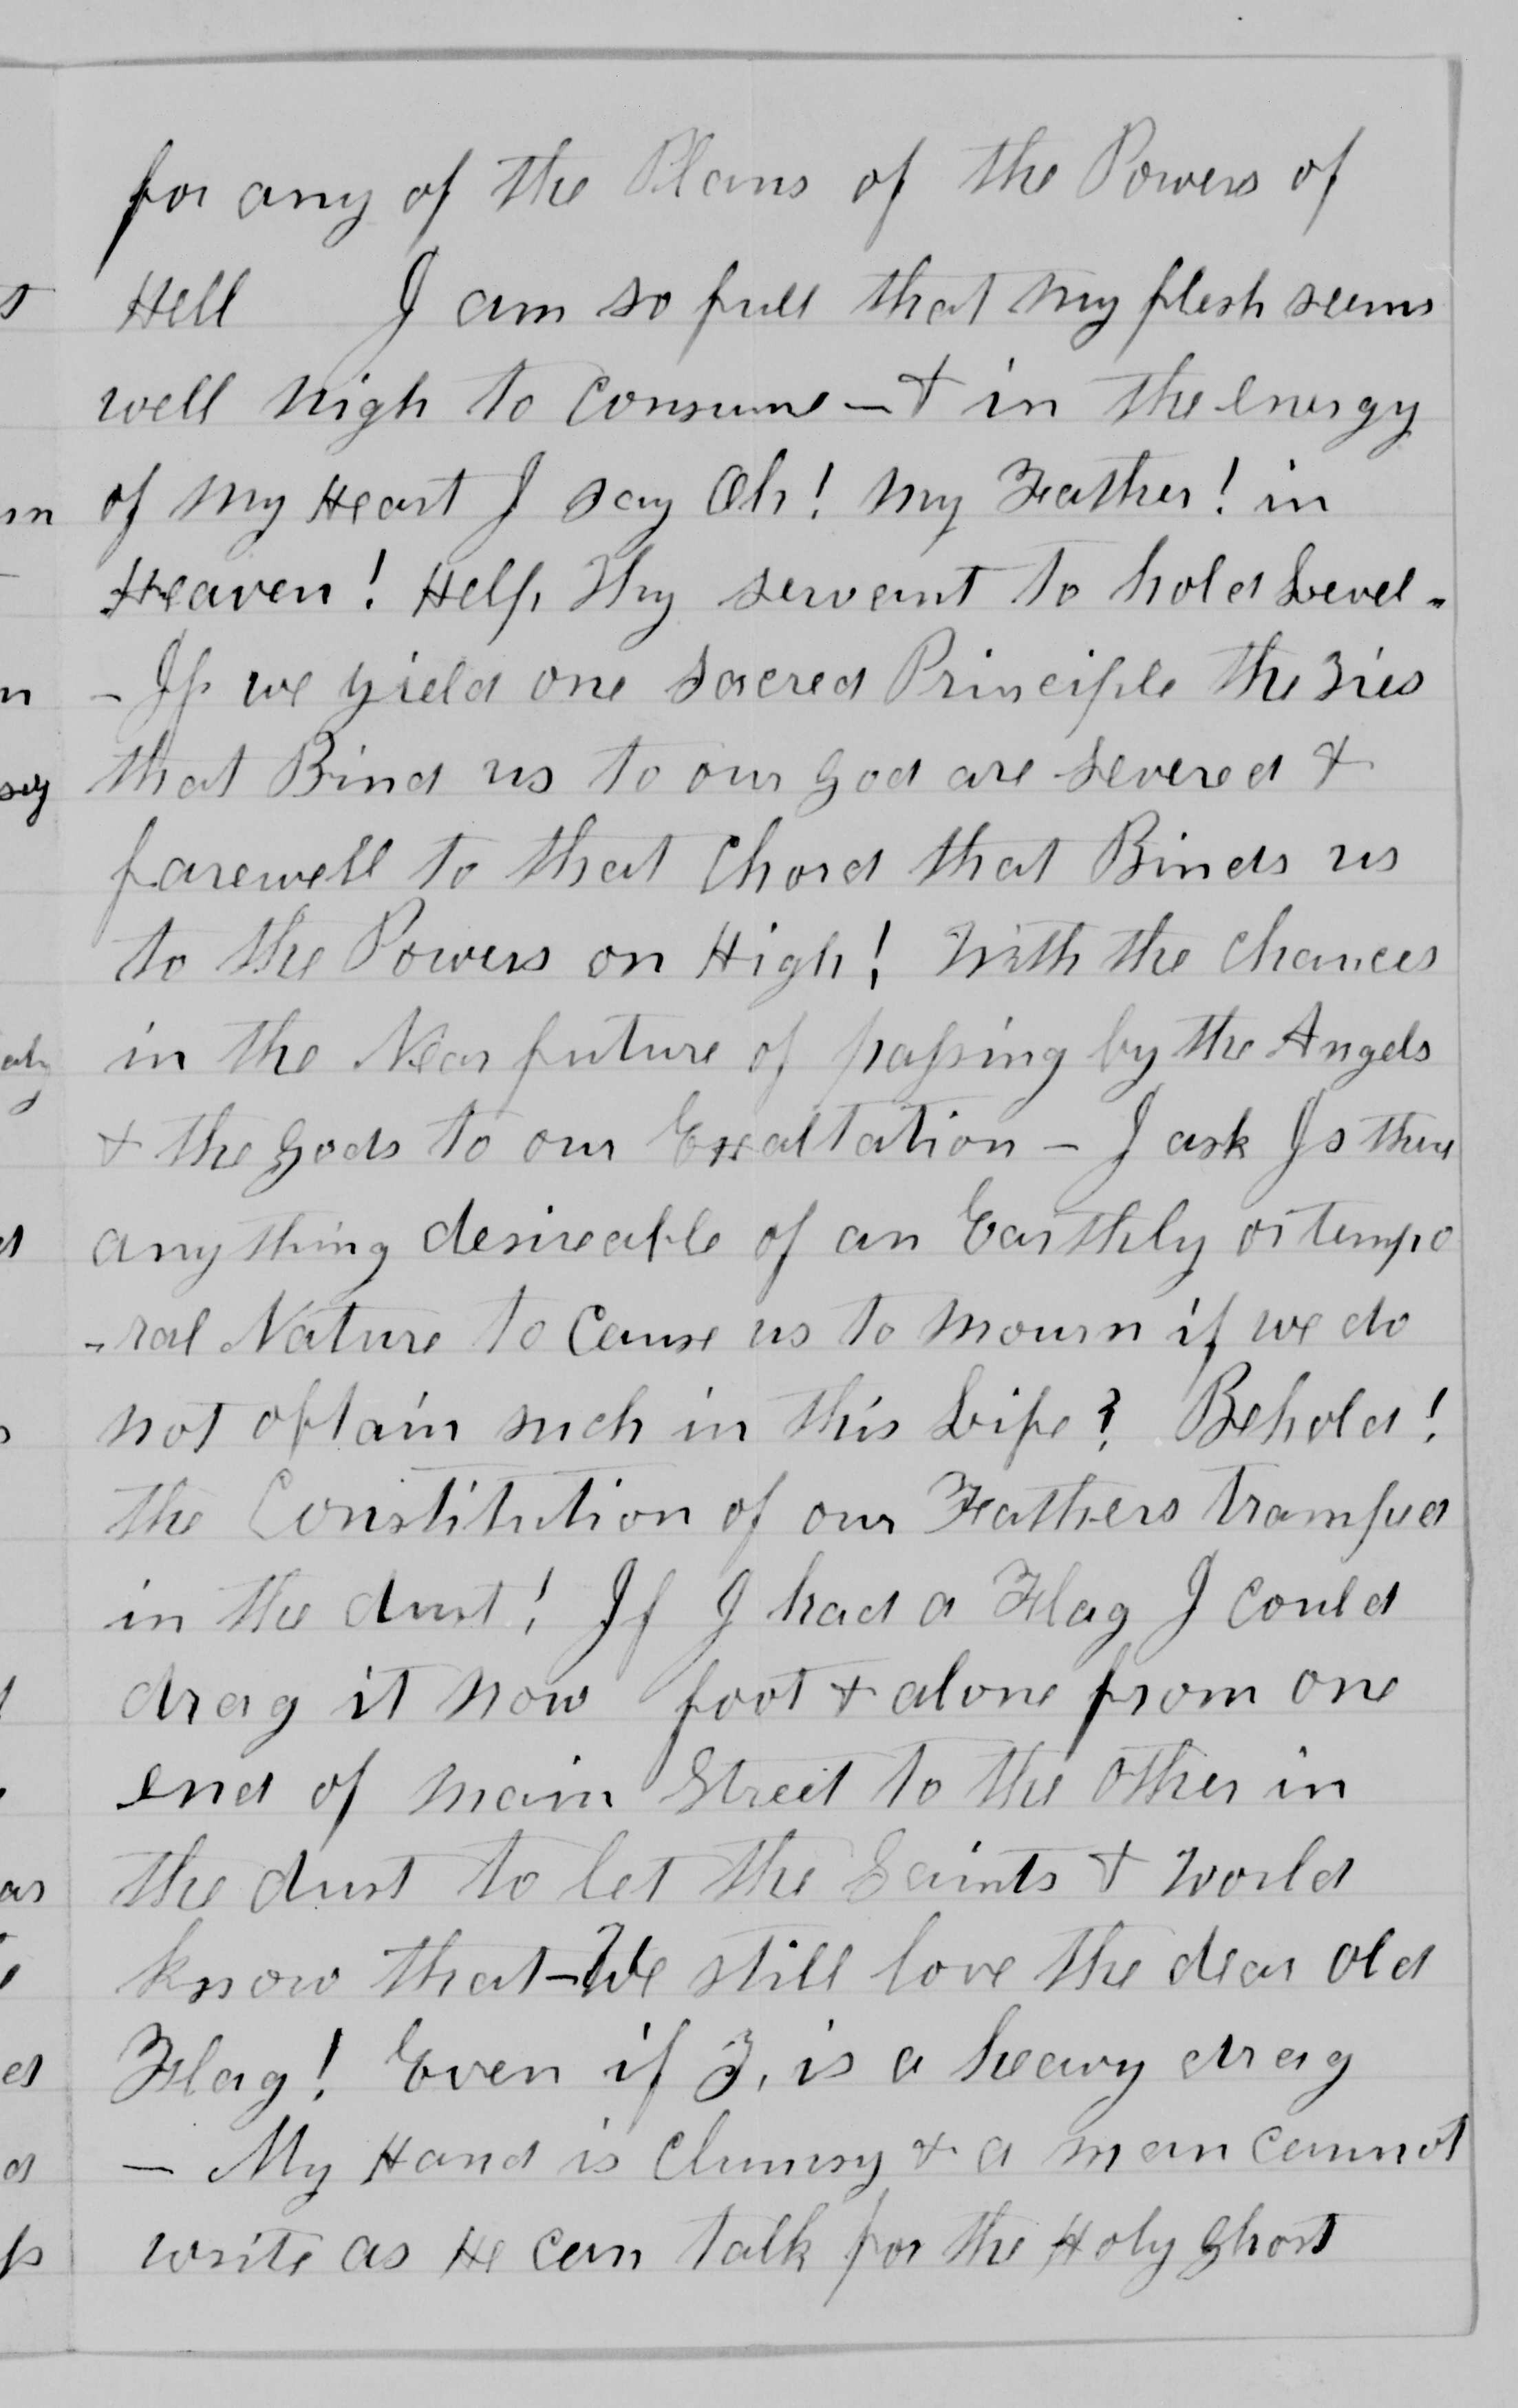 for any of the Plans of the Powers of
Hell I am so full that my flesh seems
well nigh to consume — & in the energy
of my Heart I say Oh! my Father! in
Heaven! Help Thy servant to hold Level -
- If we yield one sacred Principle the Ties
that Bind us to our God are severed &
farewell to that Chord that Binds us
to the Powers on High! With the chances
in the Near future of passing by the Angels
& the Gods to our Exaltation - I ask Is there
anything desireable of an Earthly or tempo
-ral Nature to Cause us to mourn if we do
not obtain such in this Life? Behold!
the Constitution of our Fathers trampled
in the dust! If I had a Flag I could
drag it now foot & alone from one
end of main Street to the other in
the dust to let the Saints & World
know that - We still love the dear old
Flag! Even if T, is a heavy drag
— My Hand is Clumsy & a man cannot
write as He can talk for the Holy Ghost